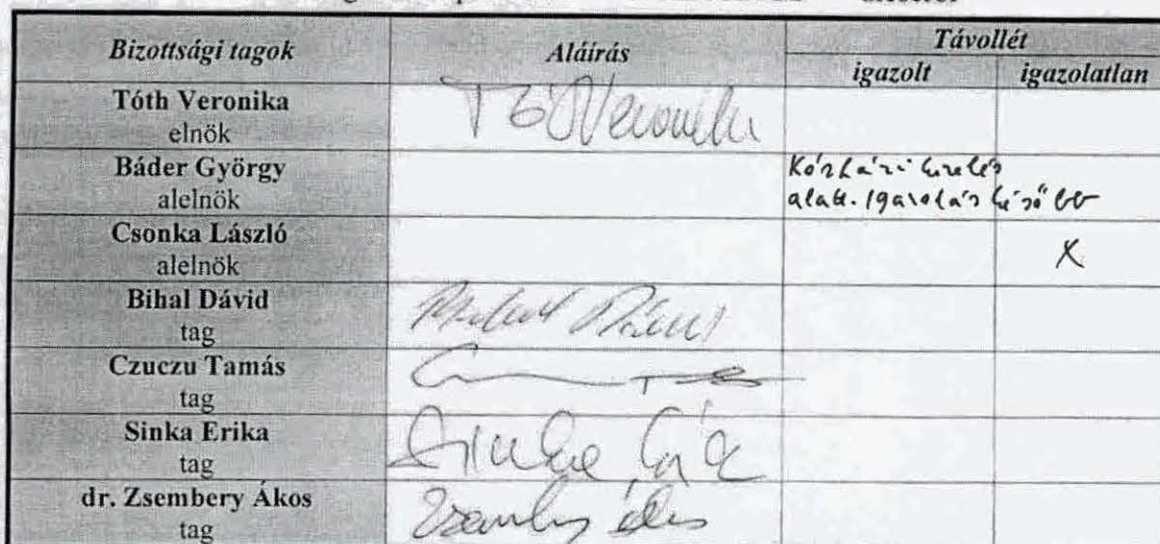 Bizottsági tagok Aláírás Távollét
igazolt igazolatlan
Tóth Veronika
elnök
Tóth Veronika
Báder György
alelnök
Kórházi kezelés
alatt. Igazolás később
Csonka László
alelnök
X
Bihal Dávid
tag
Czuczu Tamás
tag
Sinka Erika
tag
Sinka Erika
dr. Zsembery Ákos
tag
Zsembery Ákos